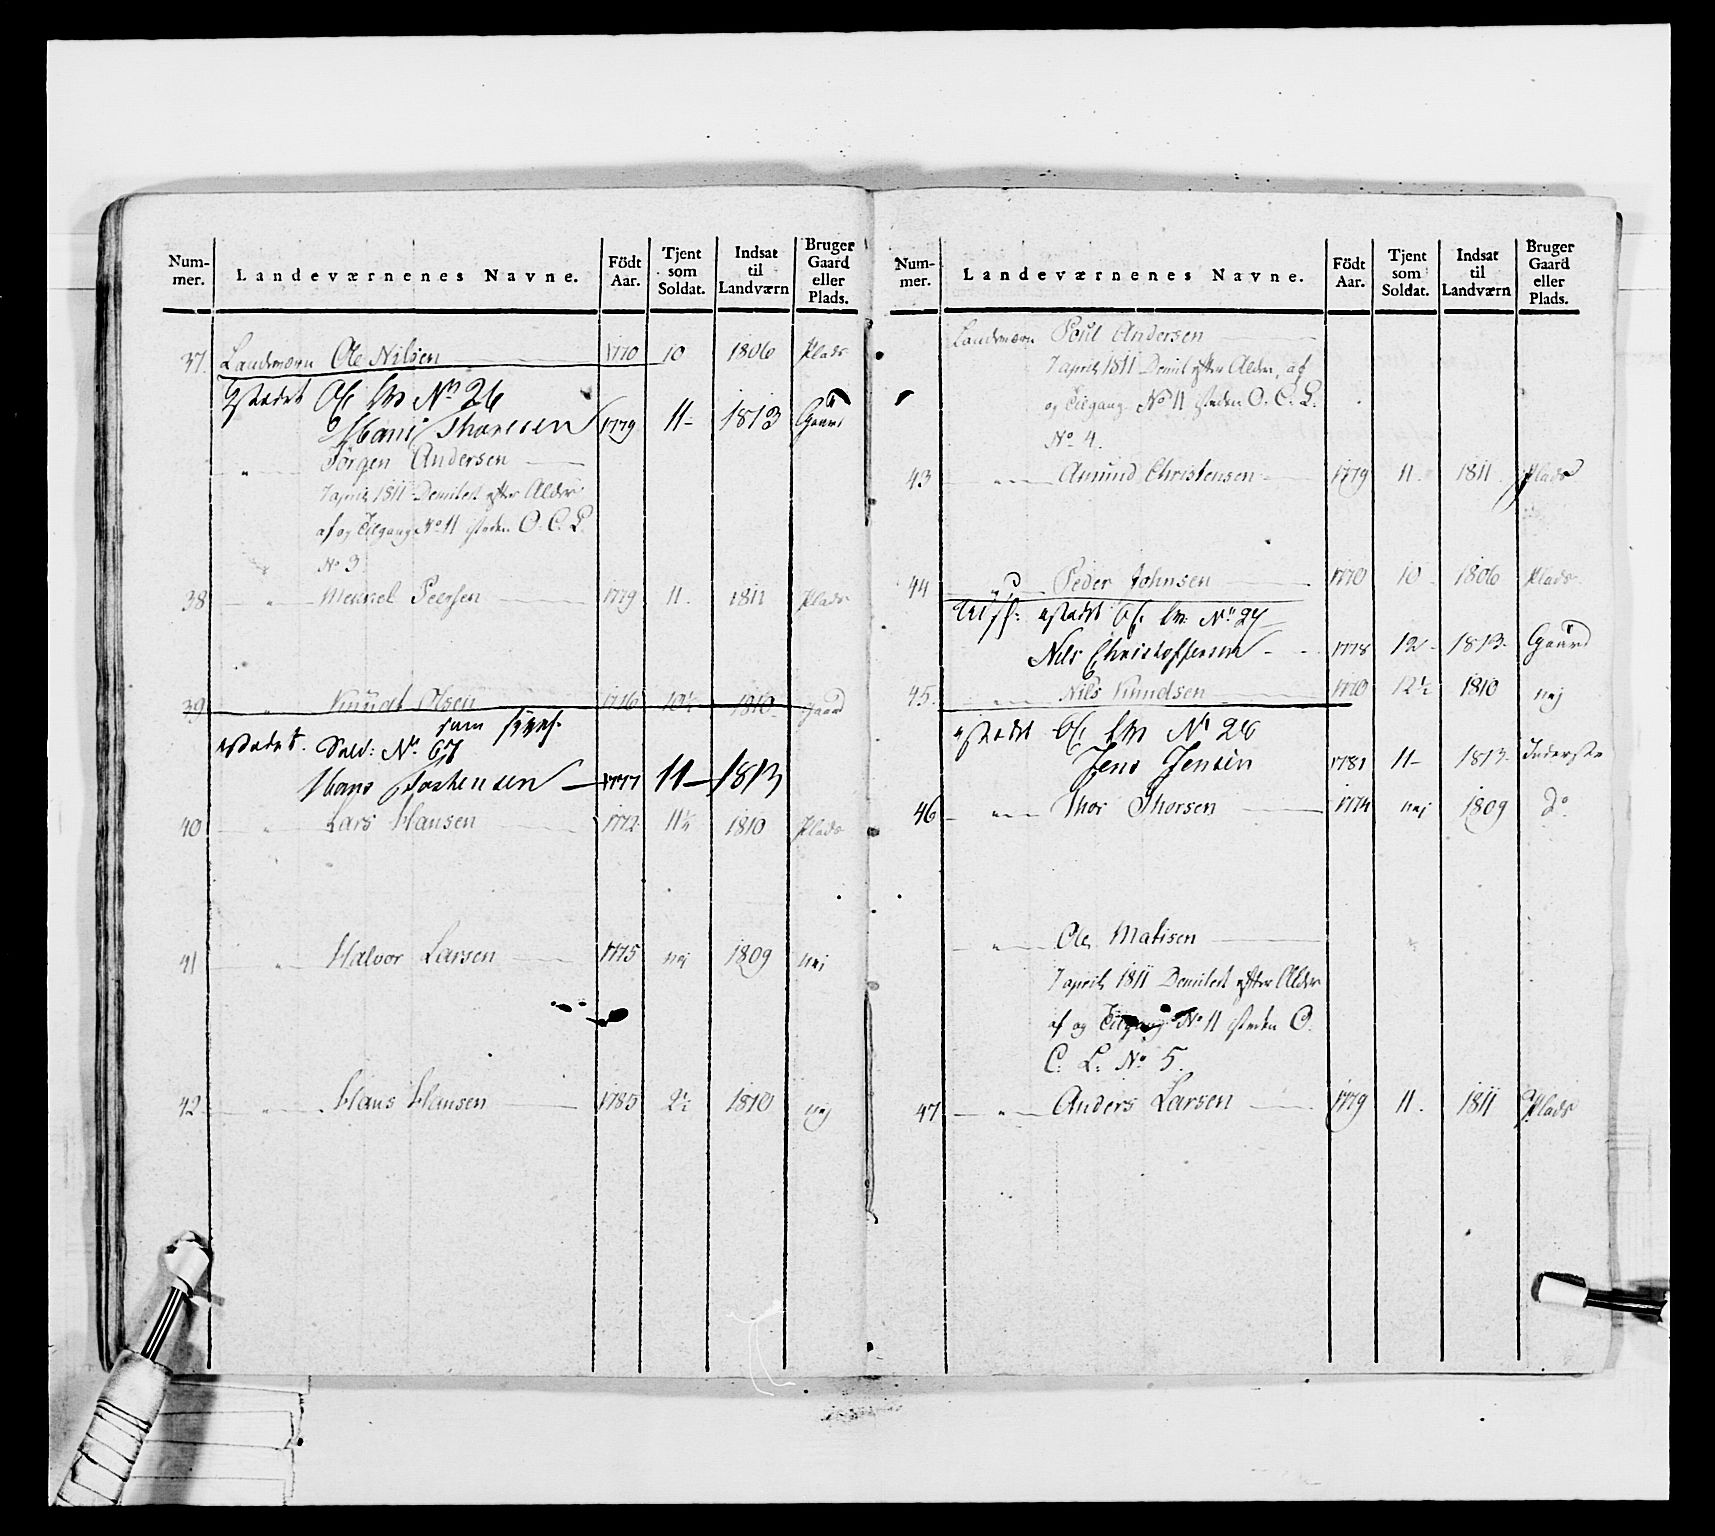 Num-
mer.
Landeværnenes Navne.
Födt
Aar.
Tjent
som
Soldat.
Indsat
til
Landværn
Bruger
Gaard
eller
Plads.
37. Landværn Ole Nilsen 1770 10 1806 Plads
No 26
Hans Thoresen 1779 11 1813 Gaard
" Jörgen Andersen
7 april 1811 Demitert efter Alder
af og Tilgang No 11 isteden O. C. L.
No 3
38 " Peersen 1779 11. 1811 Plads
39 " Knudt Olsen 1776 10½ 1810 gaard
istedet. Sold: No 67
Hans 1777 11 1813
40 " Lars Hansen 1772 11½ 1810 Plads
41 " Halvor Larsen 1775 nej 1809 nej
42 " Hans Hansen 1785 2½ 1810 nej
Num-
mer.
Landeværnenes Navne.
Födt
Aar.
Tjent
som
Soldat.
Indsat
til
Landværn
Bruger
Gaard
eller
Plads.
Landværn Poul Andersen
7 april 1811 Demit efter Alder, af
og Tilgang No 11 isteden O. C. L.
No 4.
43 " Amund Christensen 1779 11. 1811 Plads
44 " Peder Johnsen 1770 10 1806 Plads
istedet No 27
Nils Christophersen 1778 12 1813 Gaard
45. " Nils Knudsen 1770 12½ 1810 nej
istedet No 28
Jens Jensen 1781 11 1813 Inderste
46 " Thor Thorsen 1774 nej 1809 do
" Ole Matisen
7 april 1811 Demitert efter Alder
af og Tilgang No 11 isteden O.
C. L. No 5.
47 " Anders Larsen 1779 11. 1811 Plads